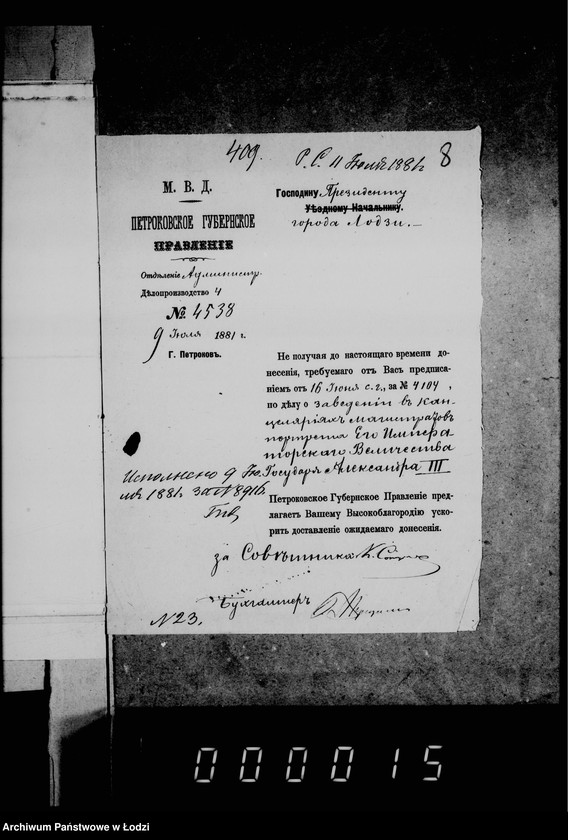 409.
Р. С. 11 Июля 1881 г.
8
М. В. Д.
ПЕТРОКОВСКОЕ ГУБЕРНСКОЕ
ПРАВЛЕНІЕ
Отдѣленіе Администр.
Дѣлопроизводство 4
№ 4538
9 Июля 1881 г.
Г. Петроковъ.
Господину Президенту
Уѣздному Начальнику.
города Лодзи.
Не получая до настоящаго времени до-
несенія, требуемаго отъ Васъ предписа-
ніемъ отъ 16 Июня с. г., за № 4104,
по дѣлу о заведеніи въ кан-
целяріяхъ магистратовъ
портрета Его Импера-
торскаго Величества
Государя Александра III
Петроковское Губернское Правленіе пред-
лагаетъ Вашему Высокоблагородію уско-
рить доставленіе ожидаемаго донесенія.
Исполнено 9 Ию-
ля 1881 г. за №
за Совѣтника
Бухгалтеръ
N 23.
000015
Archiwum Państwowe w Łodzi